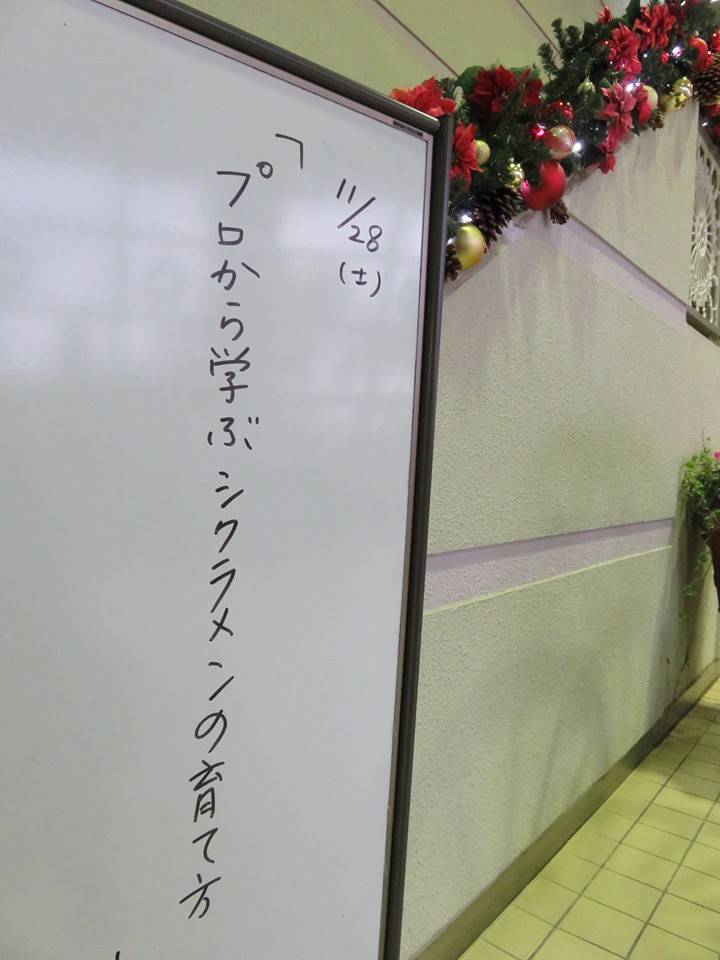 11/28
(土)
「プロから学ぶシクラメンの育て方